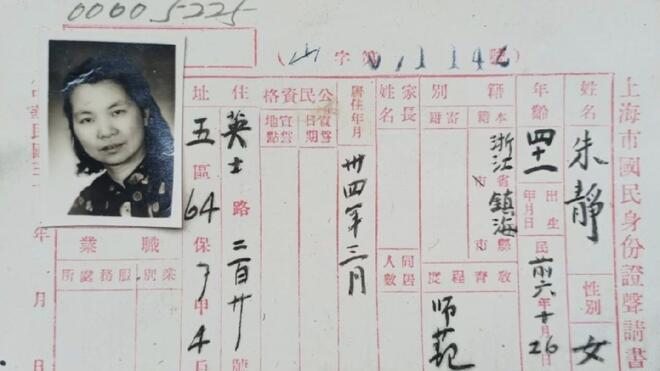 00005225
(山字第01142號)
上海市國民身份證聲請書
姓名 朱靜 性別 女
年齡 四十一 出生年月日 民前六年十月26
籍別 本籍 浙江省市鎮海縣市 寄籍
教育程度 师范
家長姓名 同居人數
居住年月 卅四年三月
公民資格 宣誓日期 宣誓地點
住址 英士路二百廿號
五區64保了甲4戶
職業 業別 服務處所
年月日